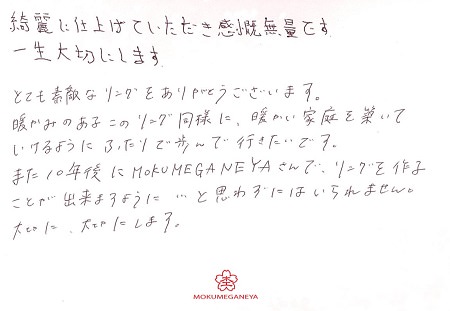 綺麗に仕上げていただき感慨無量です
一生大切にします
とても素敵なリングをありがとうございます。
暖かみのあるこのリング同様に、暖かい家庭を築いて
いけるようにふたりで歩んで行きたいです。
また10年後にMOKUMEGANEYAさんで、リングを作る
ことが出来ますように…と思わずにはいられません。
大切に、大切にします。
MOKUMEGANEYA